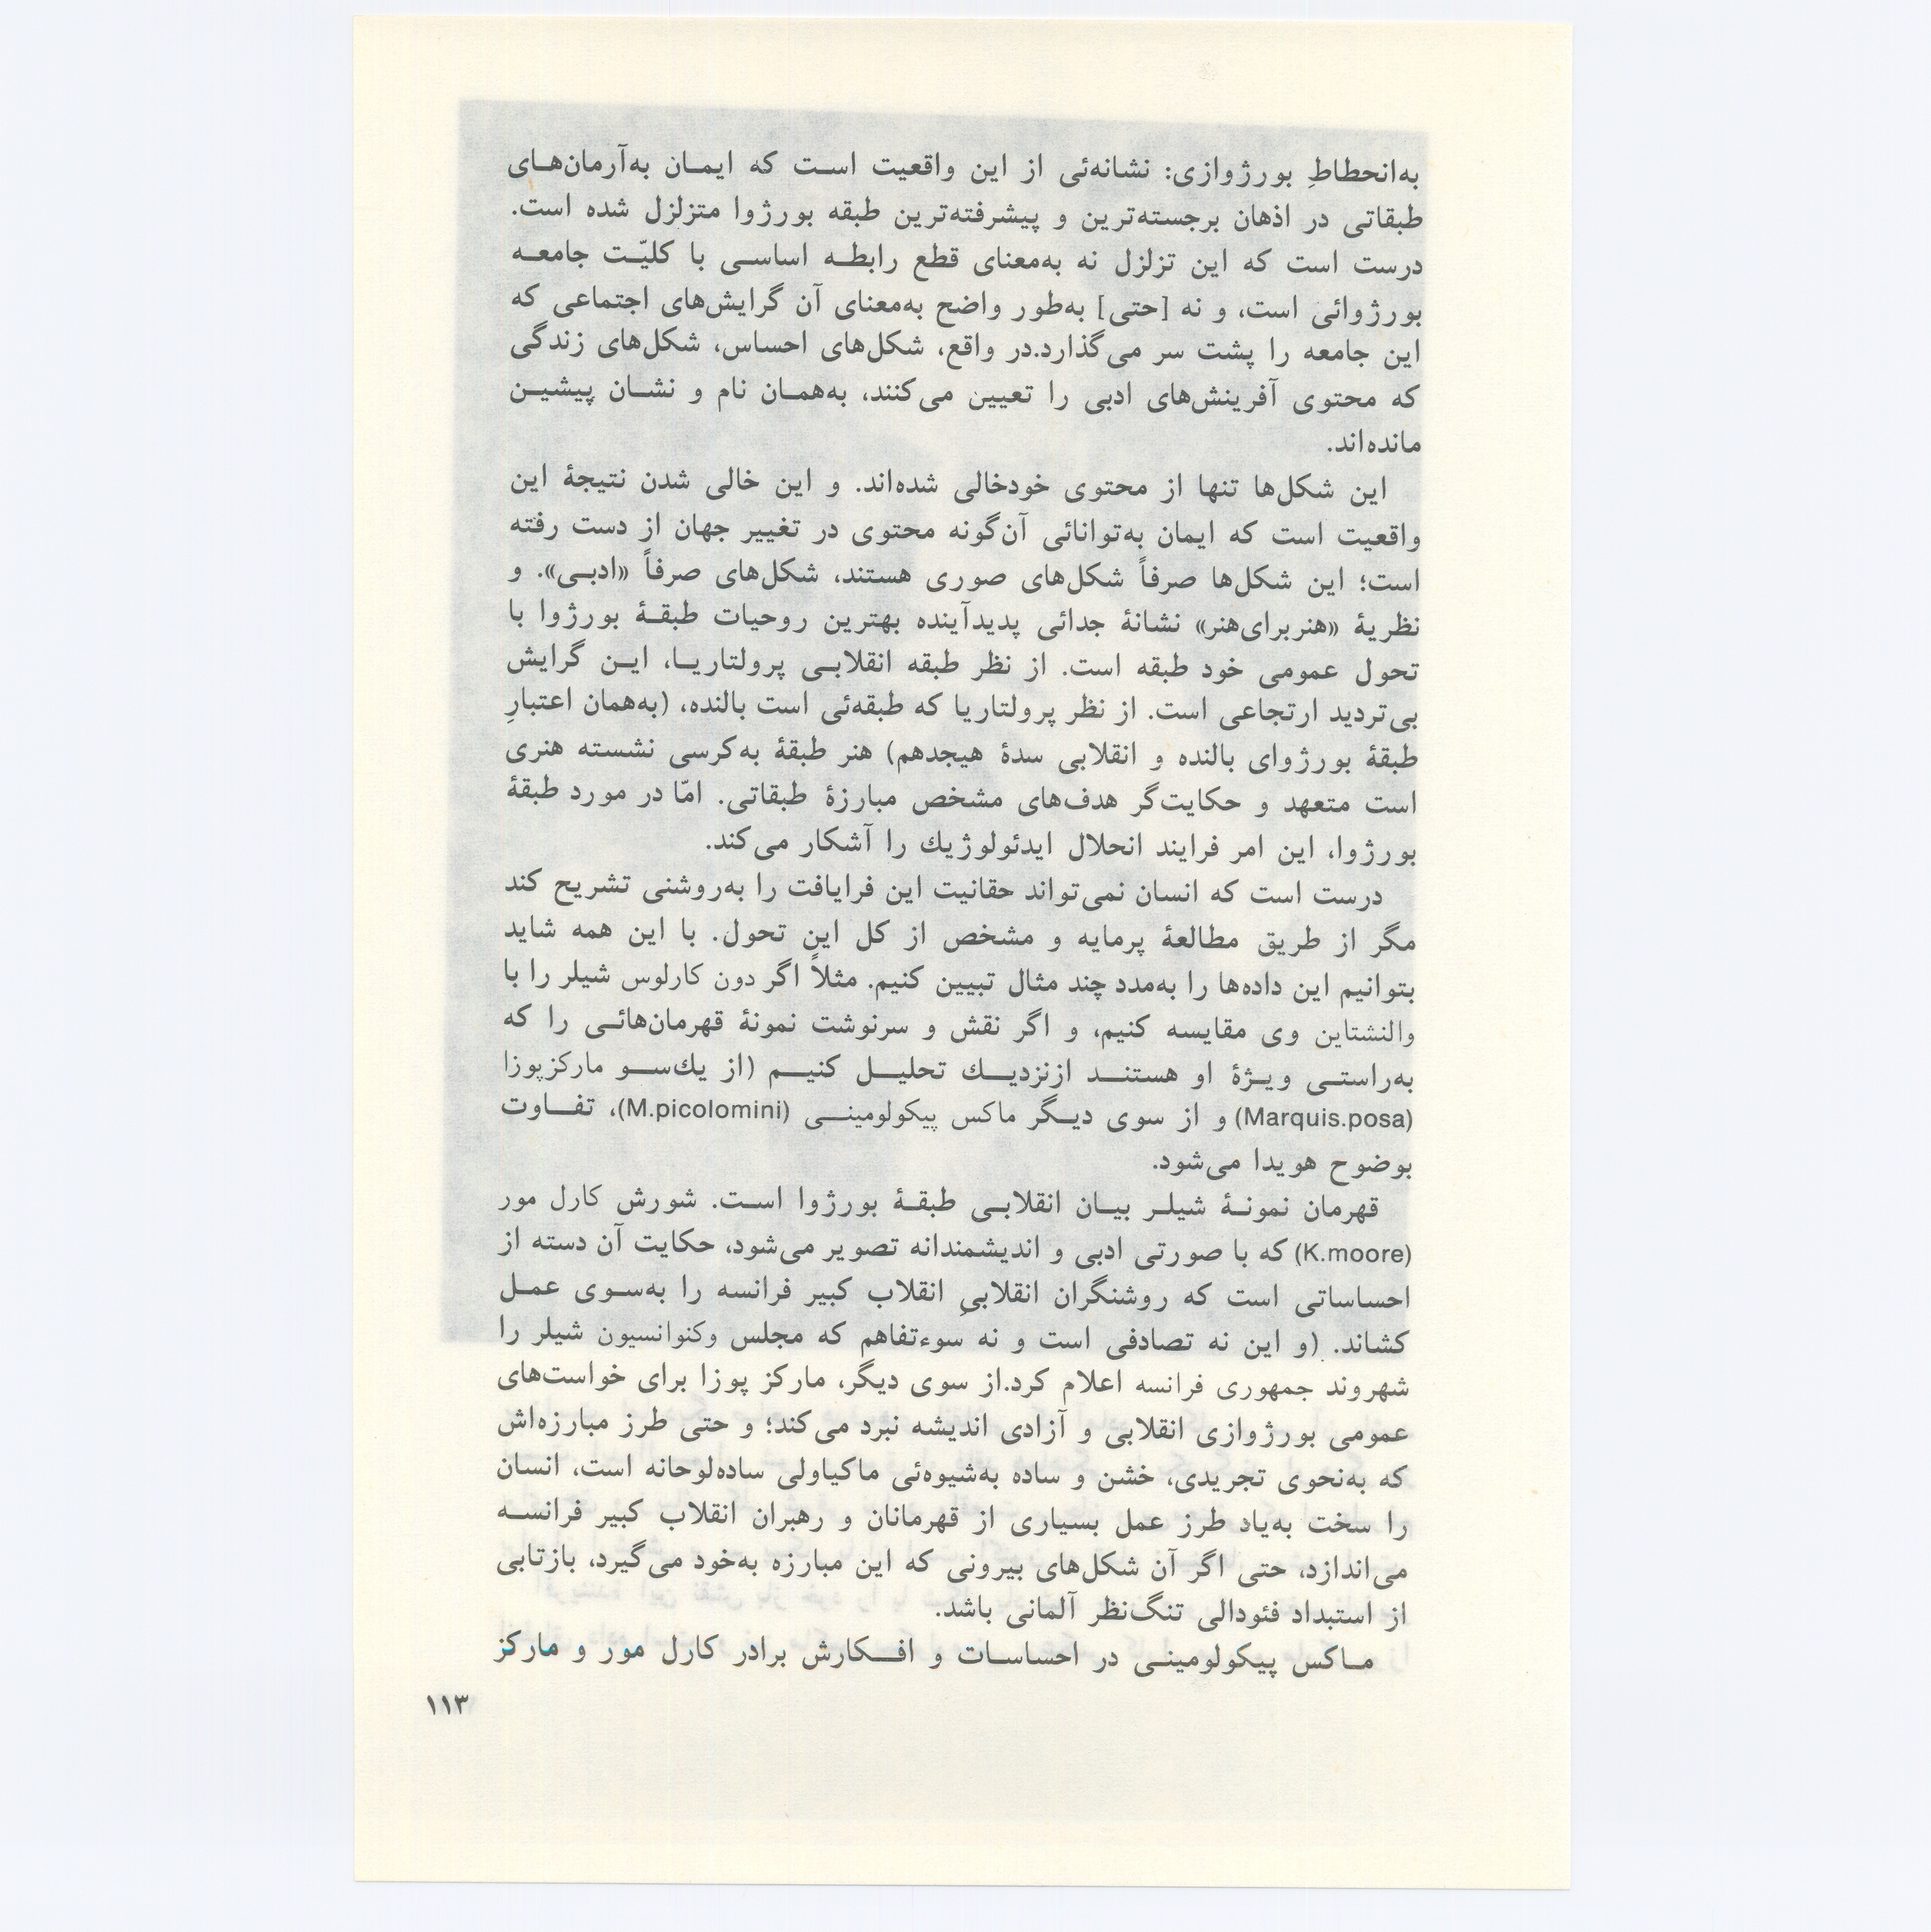 به‌انحطاطِ بورژوازی: نشانه‌ئی از این واقعیت است که ایمان به‌آرمان‌های
طبقاتی در اذهان برجسته‌ترین و پیشرفته‌ترین طبقه بورژوا متزلزل شده است.
درست است که این تزلزل نه به‌معنای قطع رابطه اساسی با کلیّت جامعه
بورژوائی است، و نه [حتی] به‌طور واضح به‌معنای آن گرایش‌های اجتماعی که
این جامعه را پشت سر می‌گذارد.در واقع، شکل‌های احساس، شکل‌های زندگی
که محتوی آفرینش‌های ادبی را تعیین می‌کنند، به‌همان نام و نشان پیشین
مانده‌اند.
این شکل‌ها تنها از محتوی خودخالی شده‌اند. و این خالی شدن نتیجهٔ این
واقعیت است که ایمان به‌توانائی آن‌گونه محتوی در تغییر جهان از دست رفته
است؛ این شکل‌ها صرفاً شکل‌های صوری هستند، شکل‌های صرفاً «ادبی». و
نظریهٔ «هنربرای‌هنر» نشانهٔ جدائی پدیدآینده بهترین روحیات طبقهٔ بورژوا با
تحول عمومی خود طبقه است. از نظر طبقه انقلابی پرولتاریا، این گرایش
بی‌تردید ارتجاعی است. از نظر پرولتاریا که طبقه‌ئی است بالنده، (به‌همان اعتبارِ
طبقهٔ بورژوای بالنده و انقلابی سدهٔ هیجدهم) هنر طبقهٔ به‌کرسی نشسته هنری
است متعهد و حکایت‌گر هدف‌های مشخص مبارزهٔ طبقاتی. امّا در مورد طبقهٔ
بورژوا، این امر فرایند انحلال ایدئولوژیك را آشکار می‌کند.
درست است که انسان نمی‌تواند حقانیت این فرایافت را به‌روشنی تشریح کند
مگر از طریق مطالعهٔ پرمایه و مشخص از کل این تحول. با این همه شاید
بتوانیم این داده‌ها را به‌مدد چند مثال تبیین کنیم. مثلاً اگر دون کارلوس شیلر را با
والنشتاین وی مقایسه کنیم، و اگر نقش و سرنوشت نمونهٔ قهرمان‌هائی را که
به‌راستی ویژهٔ او هستند ازنزدیك تحلیل کنیم (از یك‌سو مارکزپوزا
(Marquis.posa) و از سوی دیگر ماکس پیکولومینی (M.picolomini)، تفاوت
بوضوح هویدا می‌شود.
قهرمان نمونهٔ شیلر بیان انقلابی طبقهٔ بورژوا است. شورش کارل مور
(K.moore) که با صورتی ادبی و اندیشمندانه تصویر می‌شود، حکایت آن دسته از
احساساتی است که روشنگران انقلابیِ انقلاب کبیر فرانسه را به‌سوی عمل
کشاند. (و این نه تصادفی است و نه سوءتفاهم که مجلس وکنوانسیون شیلر را
شهروند جمهوری فرانسه اعلام کرد.از سوی دیگر، مارکز پوزا برای خواست‌های
عمومی بورژوازی انقلابی و آزادی اندیشه نبرد می‌کند؛ و حتی طرز مبارزه‌اش
که به‌نحوی تجریدی، خشن و ساده به‌شیوه‌ئی ماکیاولی ساده‌لوحانه است، انسان
را سخت به‌یاد طرز عمل بسیاری از قهرمانان و رهبران انقلاب کبیر فرانسه
می‌اندازد، حتی اگر آن شکل‌های بیرونی که این مبارزه به‌خود می‌گیرد، بازتابی
از استبداد فئودالی تنگ‌نظر آلمانی باشد.
ماکس پیکولومینی در احساسات و افکارش برادر کارل مور و مارکز
۱۱۳